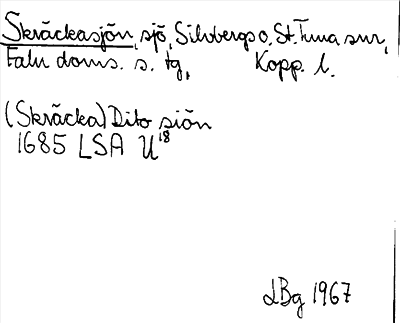 Skräckasjön, sjö, Silvbergs o, St. Tuna snr,
Falu doms. s. tg, Kopp. l.
(Skräcka) Dito siön
1685 LSA U18
LBg 1967